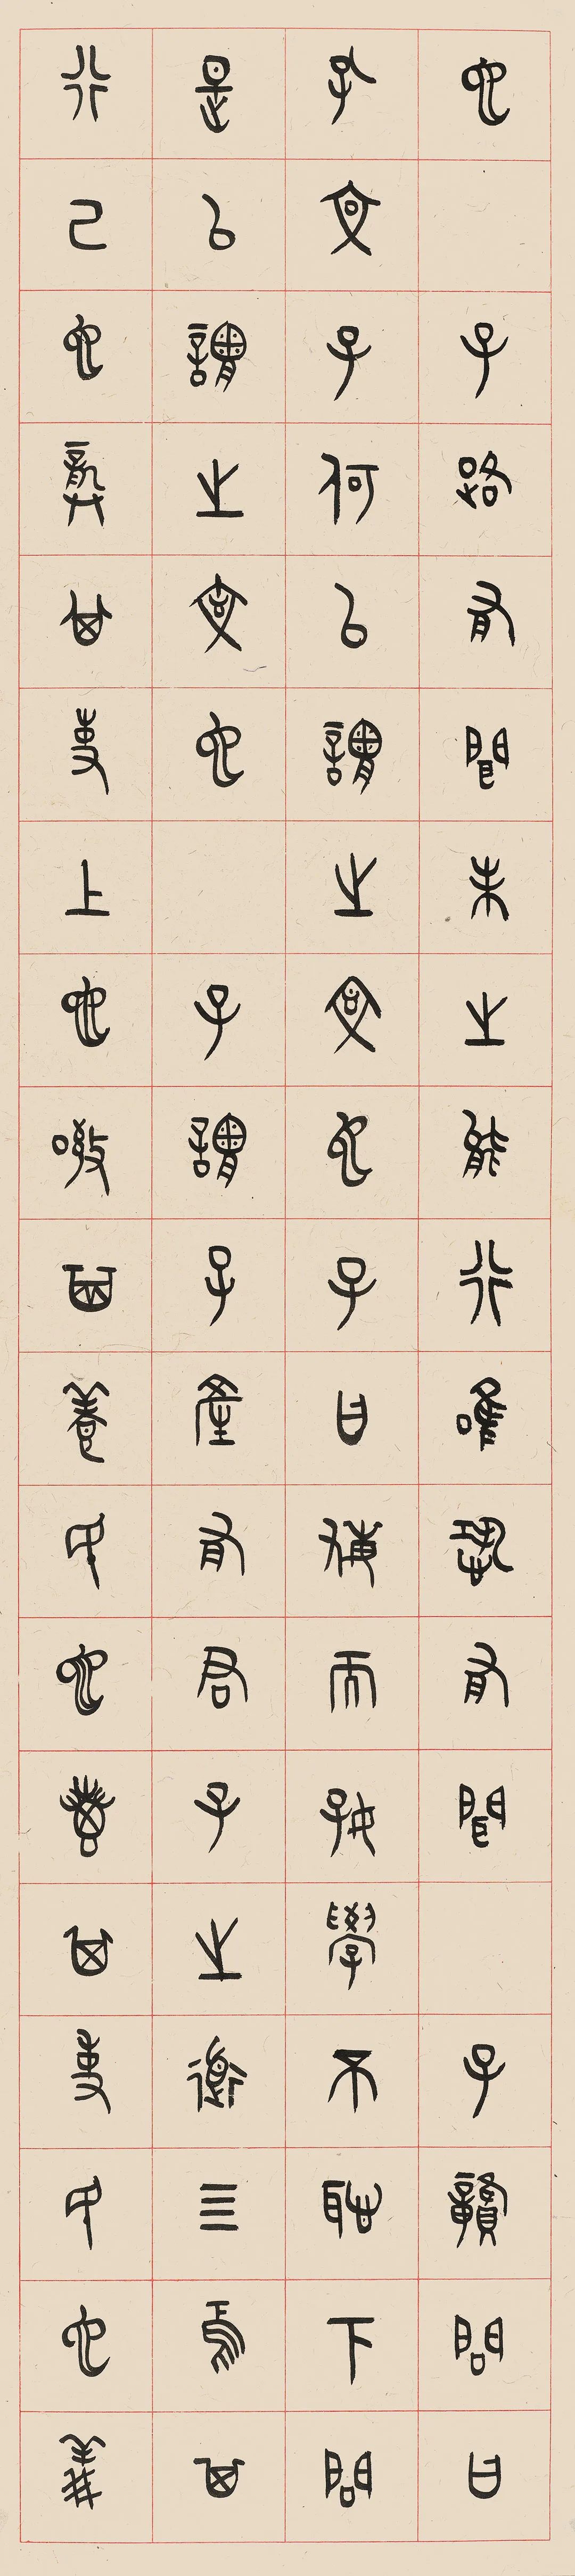 也　子路有聞未之能行唯恐有聞　子贛問曰
孔文子何以謂之文也子曰敏而好學不恥下問
是以謂之文也　子謂子產有君子之道四焉其
行己也恭其事上也敬其養民也惠其使民也義